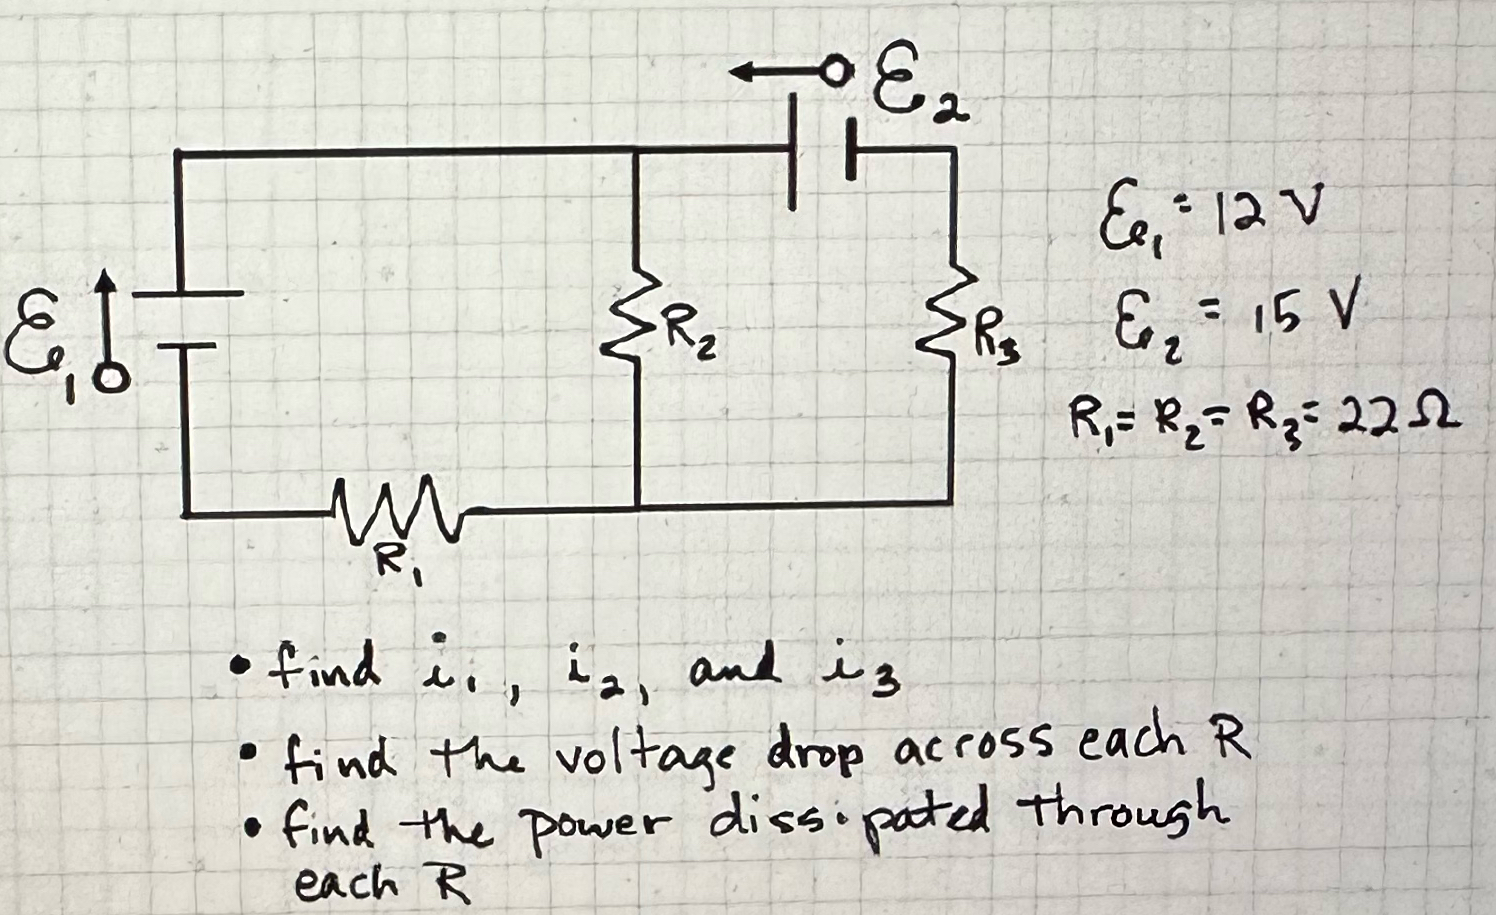 ℰ₂
ℰ₁
R₂
R₃
R₁
ℰ₁ = 12 V
ℰ₂ = 15 V
R₁ = R₂ = R₃ = 22 Ω
• find i₁, i₂, and i₃
• find the voltage drop across each R
• find the power dissipated through
each R